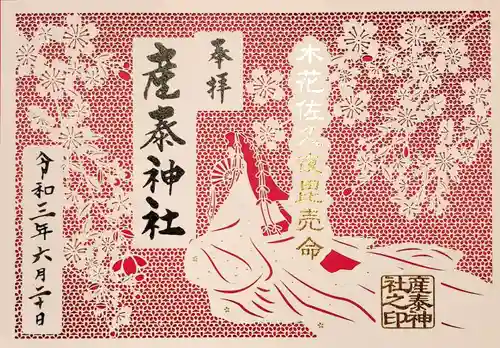 奉拝
木花佐久夜毘売命
産泰神社
令和三年六月二十日
産泰神
社之印